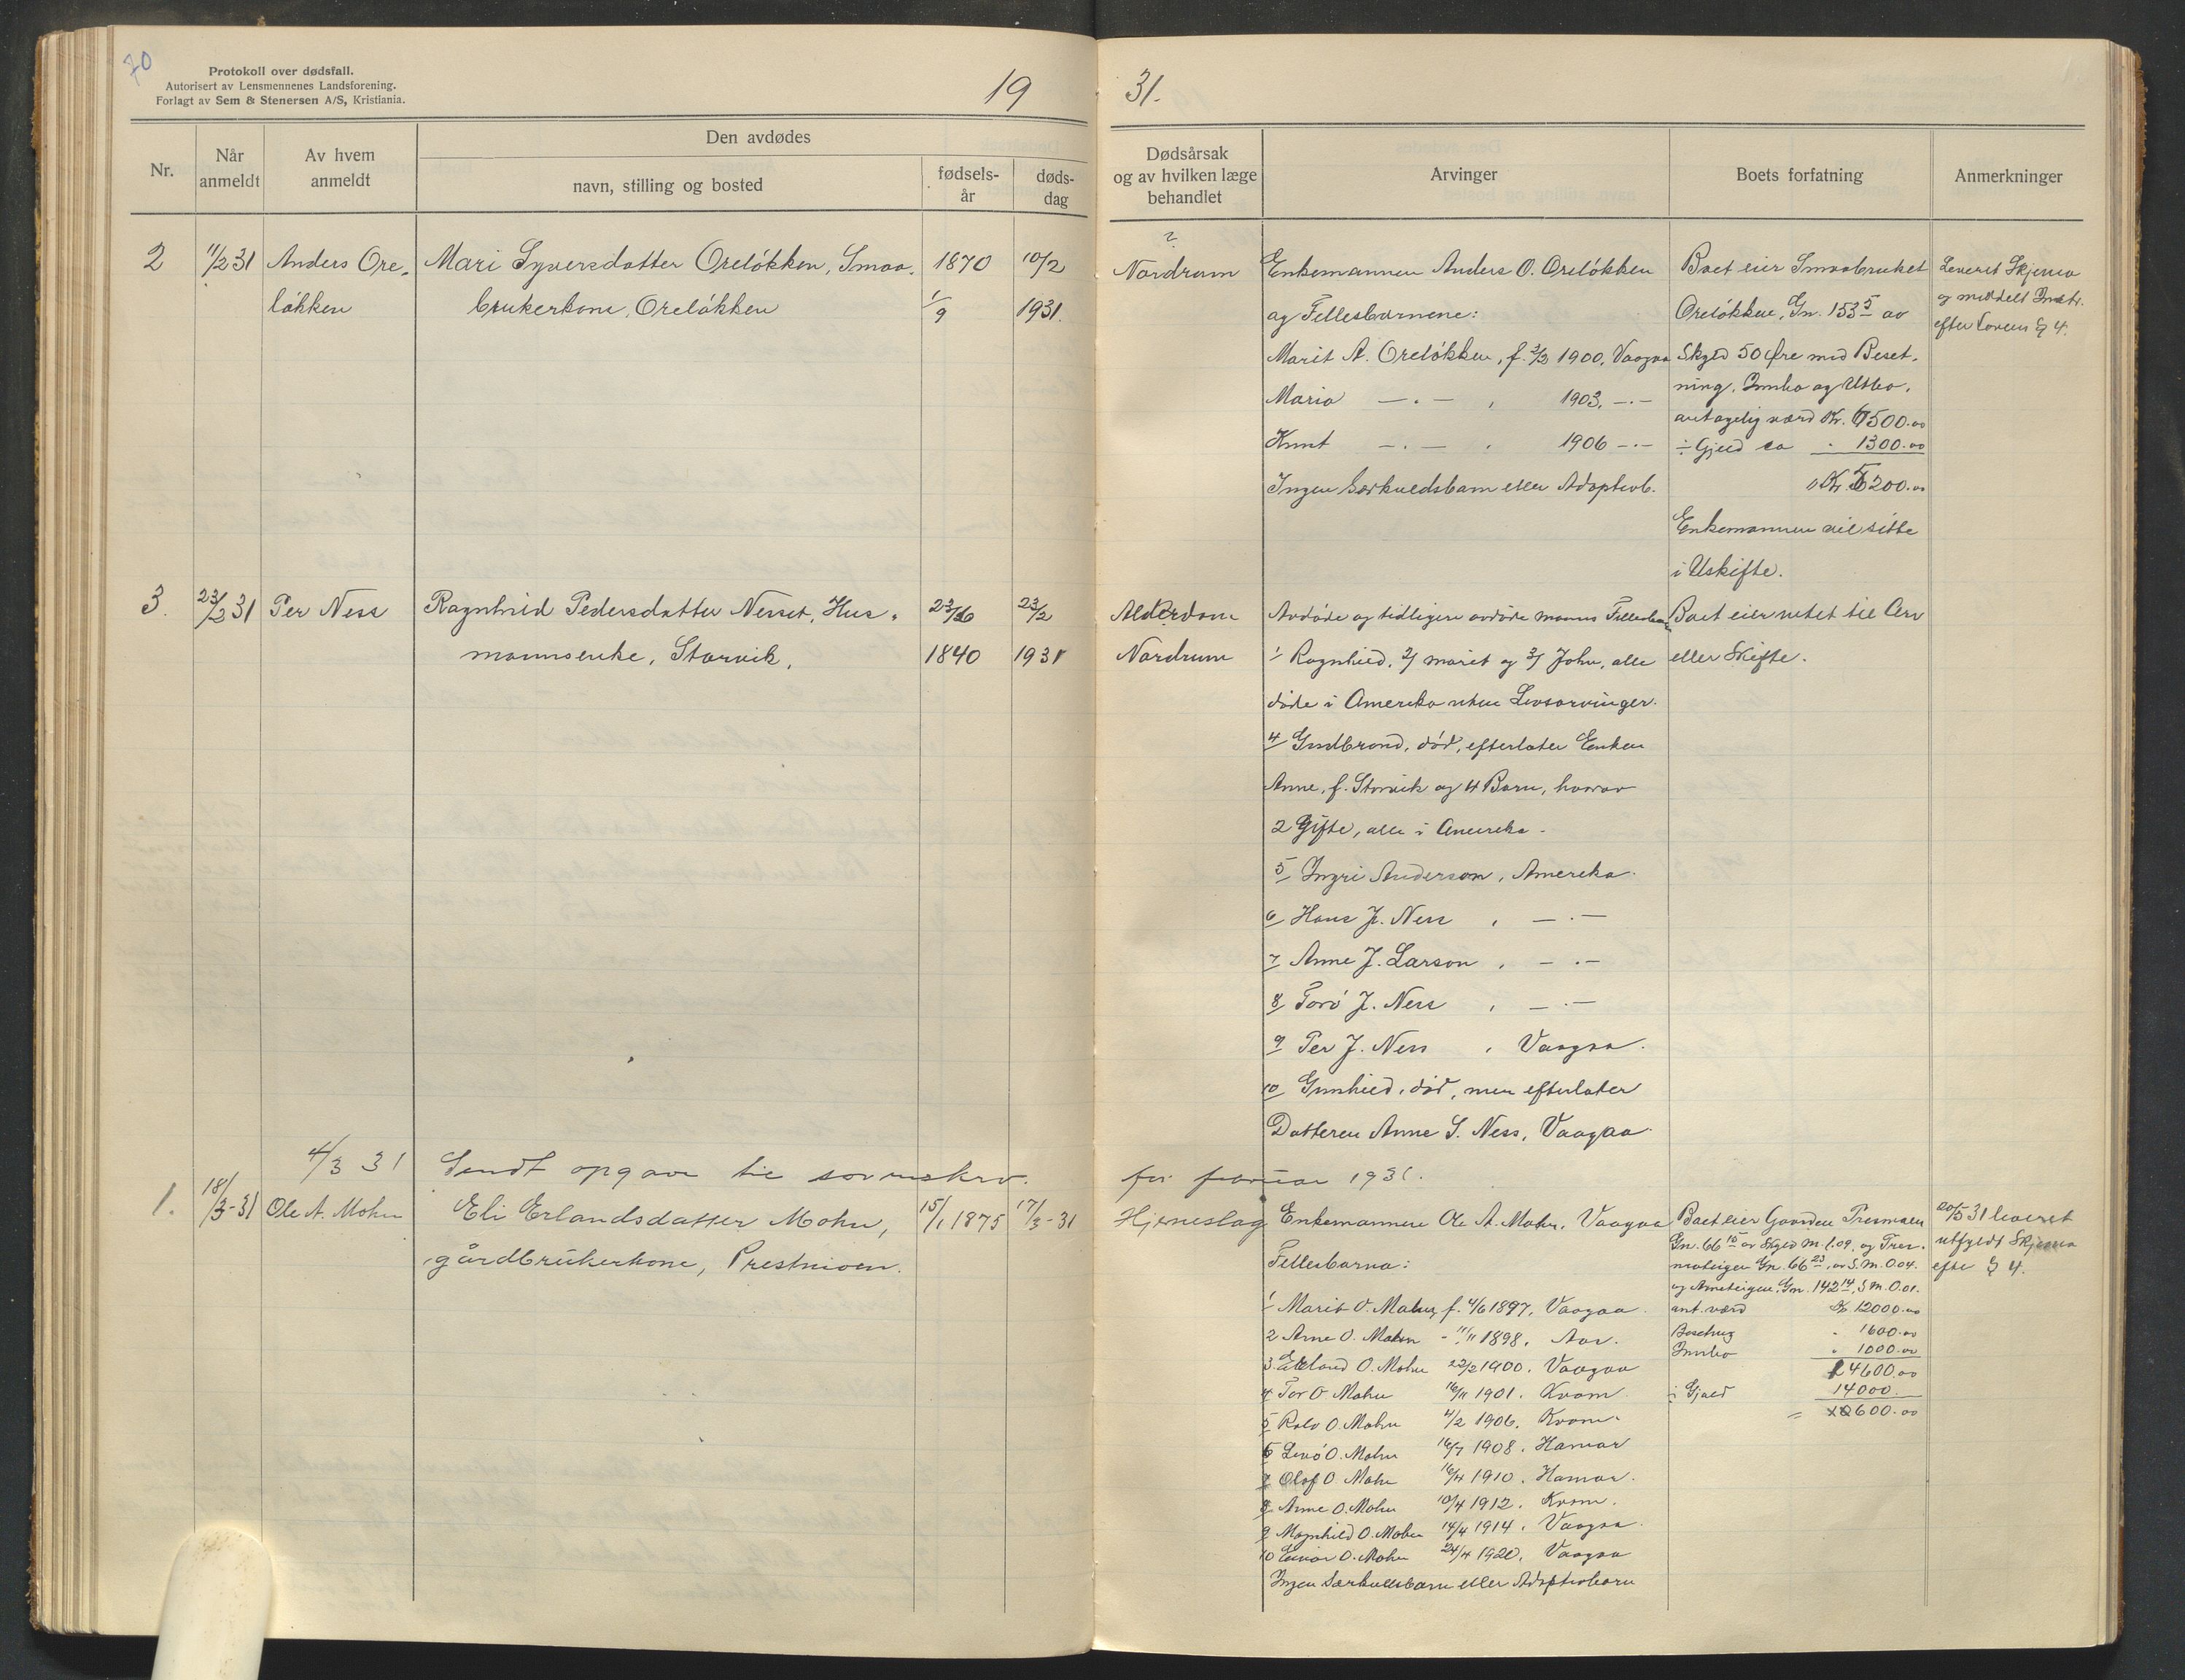 70
Protokoll over dødsfall.
Autorisert av Lensmennenes Landsforening.
Forlagt av Sem & Stenersen A/S, Kristiania.
19
31.
Nr.
Når anmeldt
Av hvem anmeldt
Den avdødes
navn, stilling og bosted
fødsels-år
døds-dag
Dødsårsak
og av hvilken læge
behandlet
Arvinger
Boets forfatning
Anmerkninger
2
11/2 31
Anders Ore-
løkken
Mari Syversdatter Oreløkken, Smaa-
brukerkone, Oreløkken
1870
1/9
10/2
1931.
?
Nordrum
Enkemannen Anders O. Oreløkken
og Fellesbarnene:
Marit A. Oreløkken, f. 3/2 1900, Vaagaa
Maria —.— , 1903, —.—
Knut —.— , 1906 —.—
Ingen Særkuldsbarn eller Adoptivb.
Boet eier Smaabruket
Oreløkken, Gn. 153 5 av
Skyld 50 Øre med Beset-
ning, Innbo og Utbo,
antagelig værd Kr. 6500.00
÷ Gjeld ca " 1300.00
Kr. 5200.00
Enkemannen vil sitte
i Uskifte.
Leveret Skjema
og meddelt Instr.
efter Lovens § 4.
3.
23/2 31
Per Ness
Ragnhild Pedersdatter Nesset, Hus-
mannsenke, Storvik,
23/6
1840
23/2
1931
Alderdom
Nordrum
Avdøde og tidligere avdøde manns Fellesbarn
1/ Ragnhild, 2/ Marit og 3/ John, alle
døde i Amerika uten Livsarvinger.
4/ Gudbrand, død, efterlater Enken
Anne, f. Storvik og 4 Barn, hvorav
2 Gifte, alle i Amerika.
5/ Ingri Anderson, Amerika.
6/ Hans J. Ness , —.—
7/ Anne J. Larson , —.—
8/ Torø J. Ness , —.—
9/ Per J. Ness , Vaagaa.
10/ Gunhild, død, men efterlater
Datteren Anne S. Ness, Vaagaa.
Boet eier intet til Arv
eller Skifte.
4/3 31 Sendt opgave til sorenskrv. for februar 1931.
1.
18/3-31
Ole A. Mohn
Eli Erlandsdatter Mohn,
gårdbrukerkone, Prestmoen.
15/1 1875
17/3-31
Hjerneslag
Enkemannen Ole A. Mohn, Vaagaa
Fellesbarna:
1 Marit O. Mohn, f. 4/6 1897, Vaagaa
2 Arne O. Mohn - 11/11 1898, Aar.
3 Erland O. Mohn 22/2 1900. Vaagaa
4 Tor O. Mohn 16/11 1901. Kvam.
5 Rolv O. Mohn 4/2 1906. Kvam.
6 Livø O. Mohn 16/7 1908. Hamar
7 Olaf O. Mohn 16/4 1910. Hamar.
8 Anne O. Mohn 10/4 1912. Kvam.
9 Magnhild O. Mohn 14/4 1914. Vaagaa.
10 Einar O. Mohn 24/4 1920. Vaagaa
Ingen Særkullsbarn eller Adoptivbarn
Boet eier Gaarden Presmoen
Gn. 66 15 av Skyld M. 1.09, og Pres-
moteigen Gn. 66 23, av S.M. 0.04.
og Arneteigen, Gn. 142 14, S.M. 0.01.
ant. værd Kr. 12000.00
Besetng " 1600.00
Innbo " 1000.00
14600.00
÷ Gjeld 14000.
= 600.00
20/5 31 leveret
utfyldt Skjema
efter § 4.